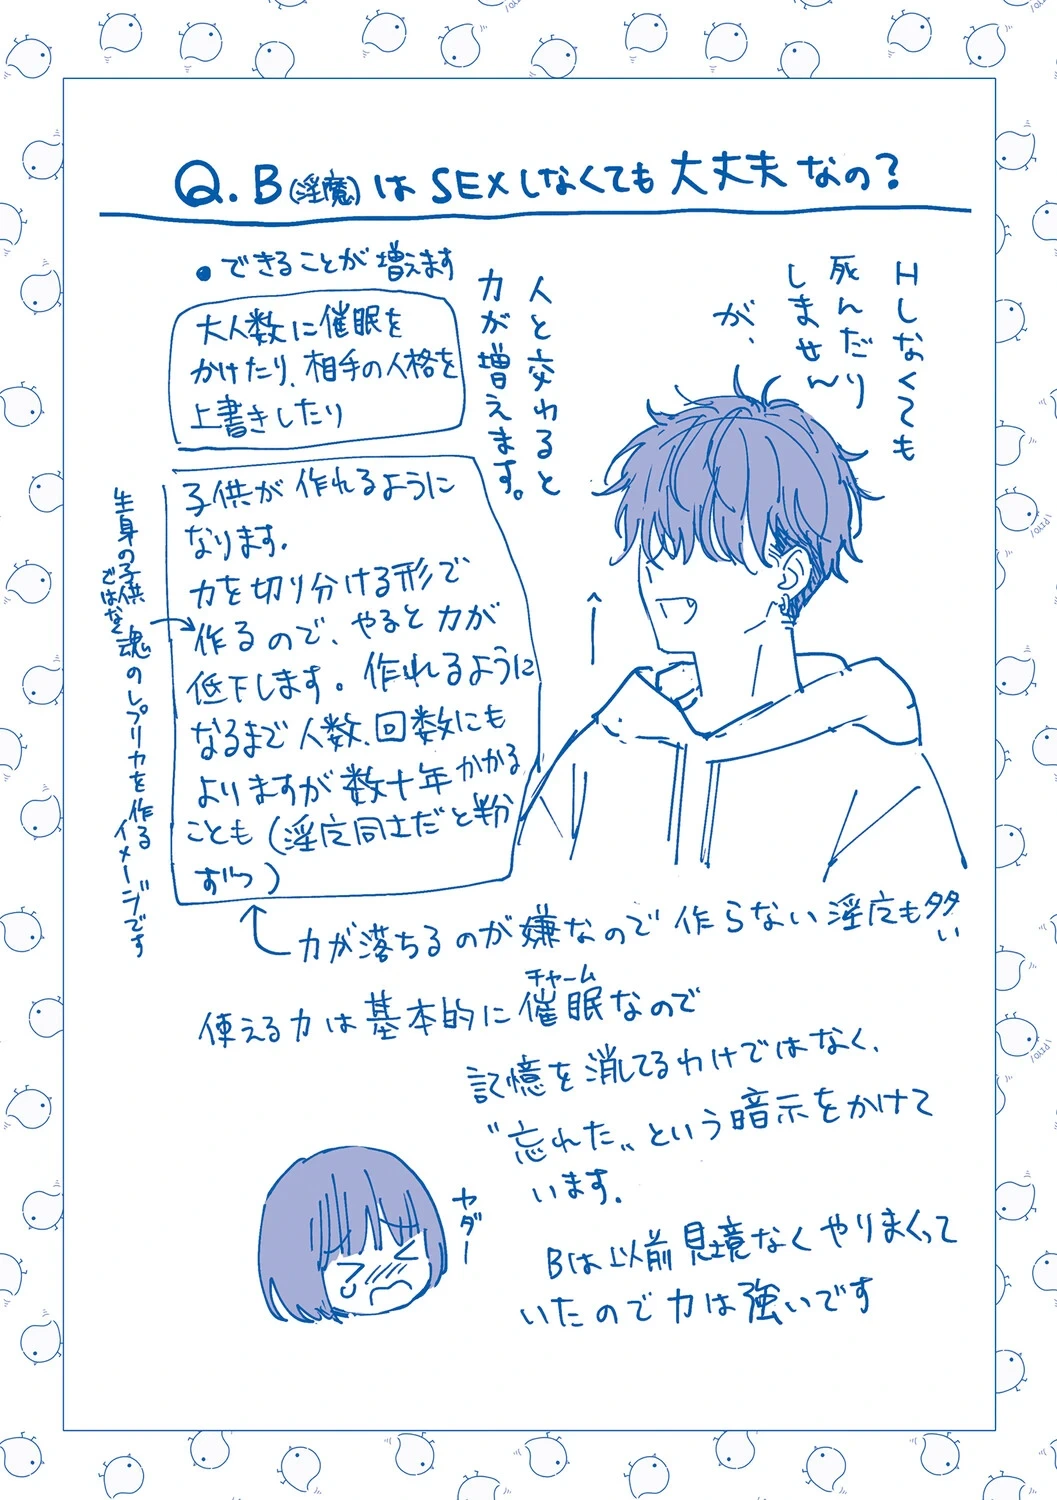 Q. B(淫魔)は SEXしなくても大丈夫なの?
Hしなくても
死んだり
しません
が、
人と交わると
力が増えます。
• できることが増えます
大人数に催眠を
かけたり、相手の人格を
上書きしたり
子供が作れるように
なります.
力を切り分ける形で
作るので、やると力が
低下します。作れるように
なるまで人数、回数にも
よりますが数十年かかる
ことも(淫魔同士だと半分
ずつ)
生身の子供
ではなく
魂のレプリカを作る
イメージです
力が落ちるのが嫌なので作らない淫魔も多い
チャーム
使える力は基本的に催眠なので
記憶を消してるわけではなく、
"忘れた"という暗示をかけて
います.
ヤダー
Bは以前見境なくやりまくって
いたので力は強いです